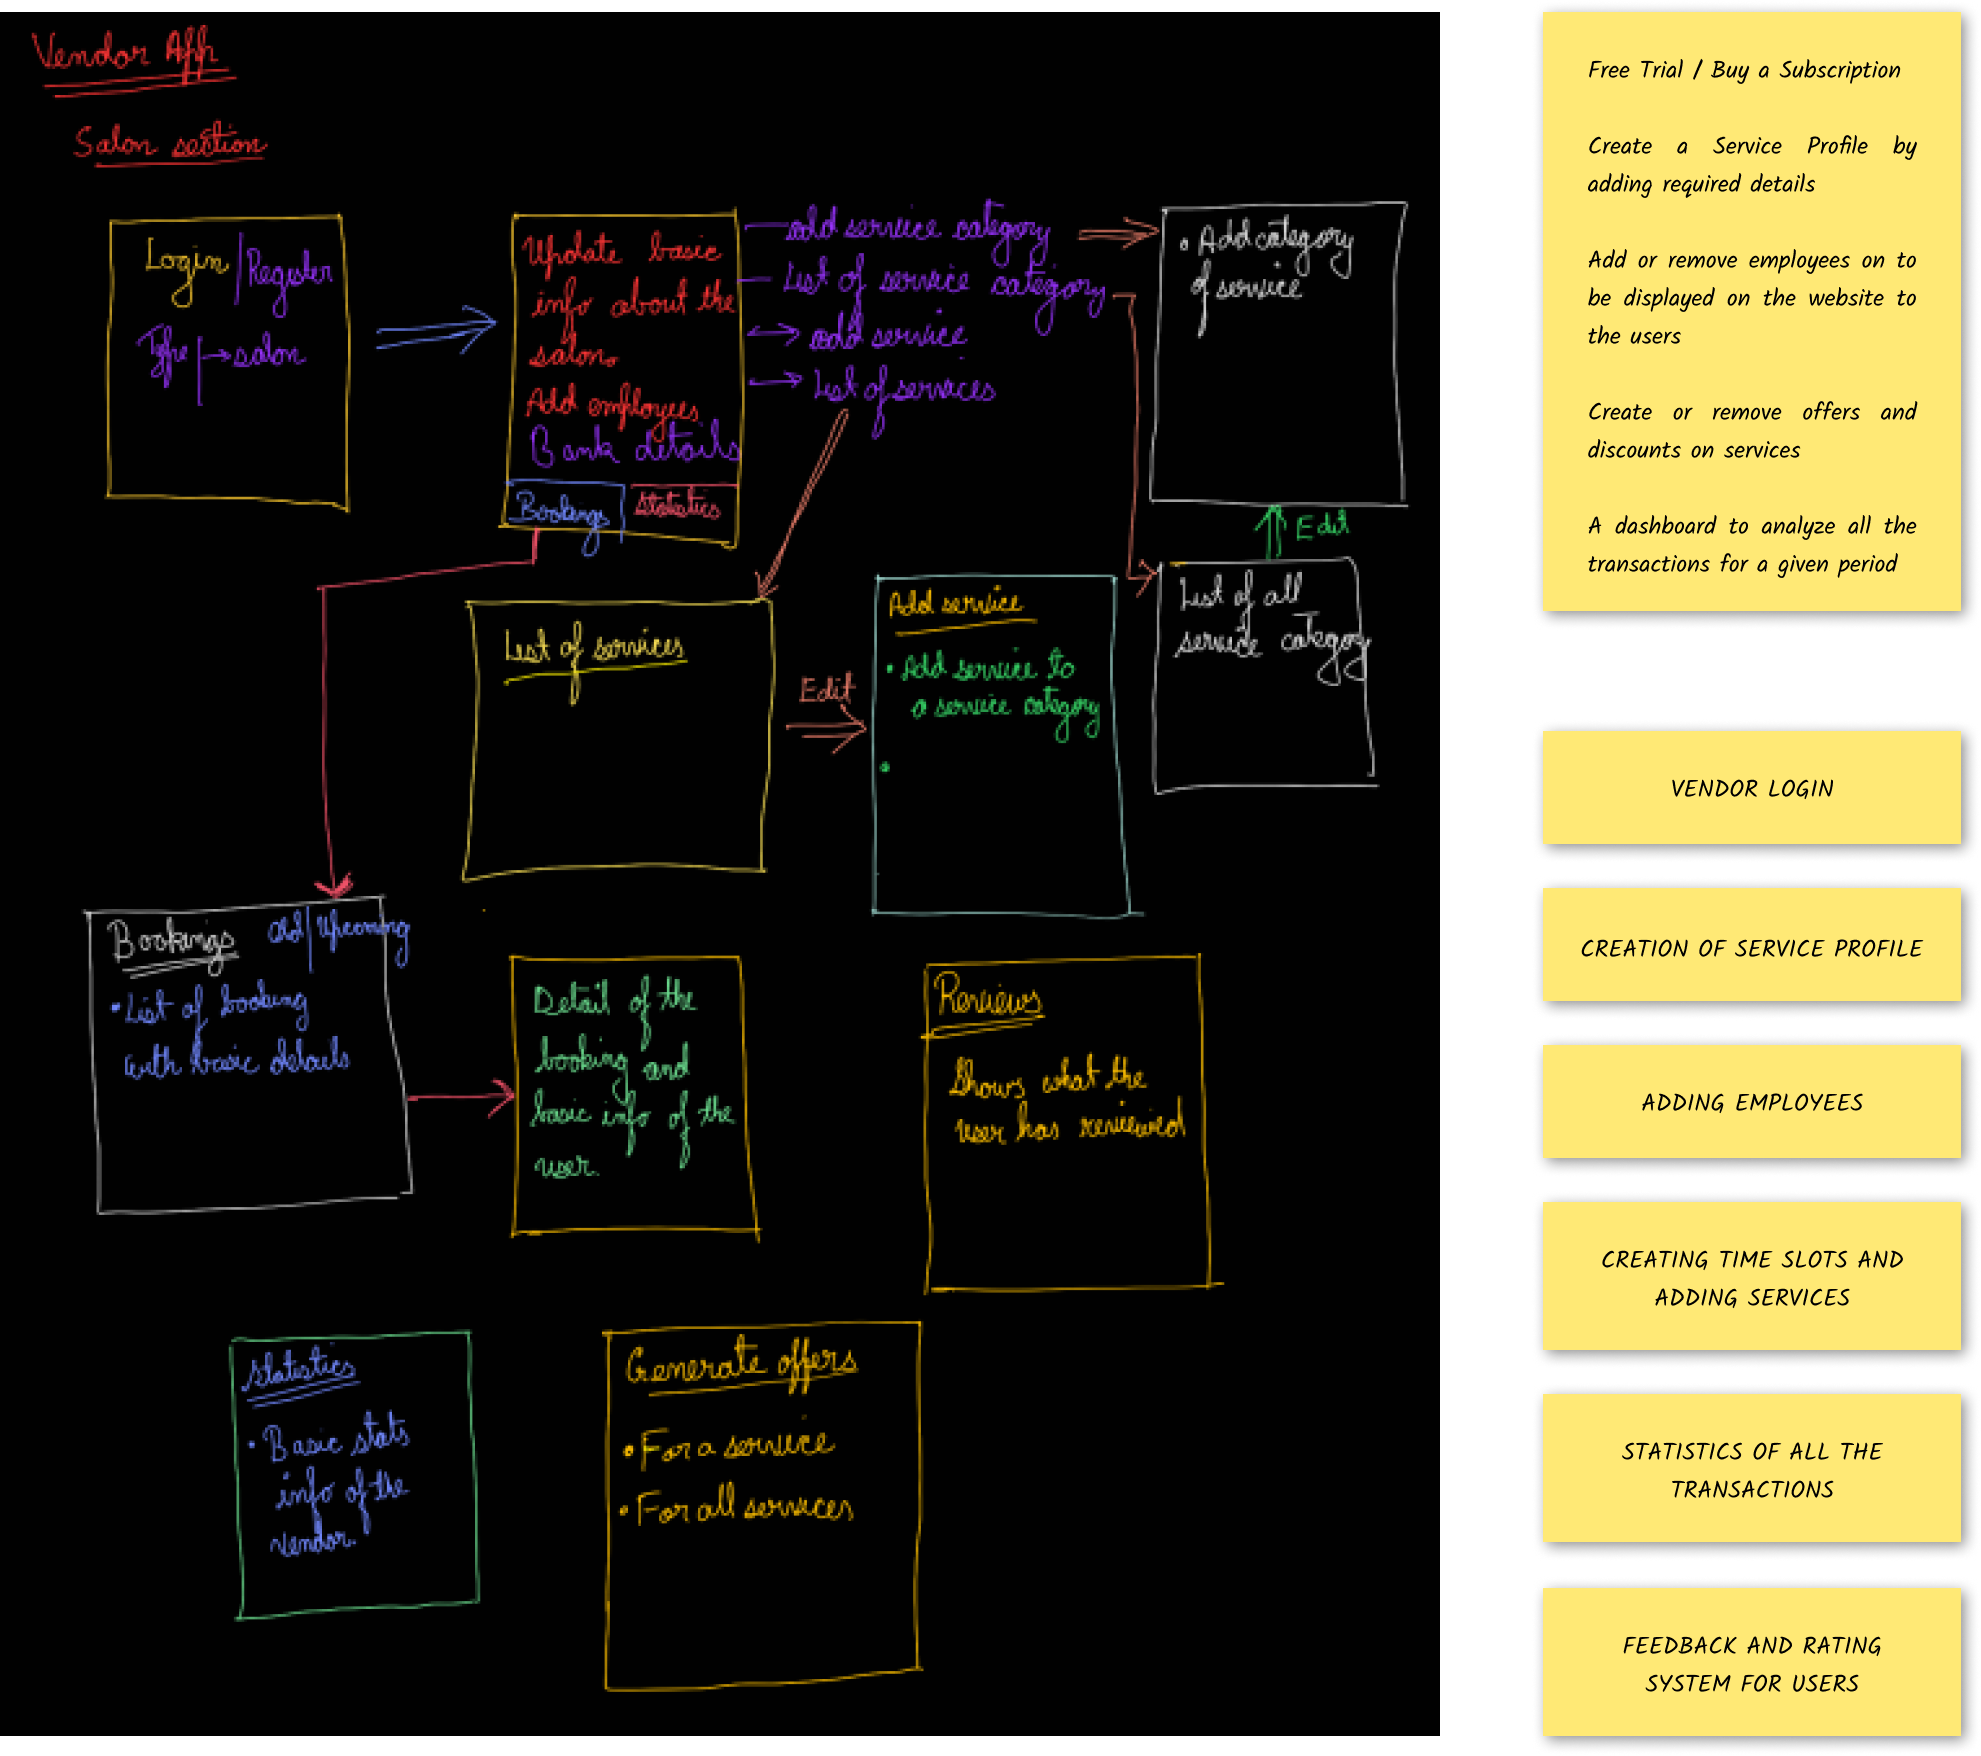 Vendor App
Salon section
Login / Register
Type | → salon
Update basic
info about the
salon.
Add employees
Bank details
Bookings
Statistics
add service category
List of service category
add service
List of services
• Add category
of service
Edit
List of all
service category
List of services
Edit
Add service
• Add service to
a service category
•
Bookings
old/Upcoming
• List of booking
with basic details
Detail of the
booking and
basic info of the
user.
Reviews
Shows what the
user has reviewed
Statistics
• Basic stats
info of the
vendor.
Generate offers
• For a service
• For all services
Free Trial / Buy a Subscription
Create a Service Profile by
adding required details
Add or remove employees on to
be displayed on the website to
the users
Create or remove offers and
discounts on services
A dashboard to analyze all the
transactions for a given period
VENDOR LOGIN
CREATION OF SERVICE PROFILE
ADDING EMPLOYEES
CREATING TIME SLOTS AND
ADDING SERVICES
STATISTICS OF ALL THE
TRANSACTIONS
FEEDBACK AND RATING
SYSTEM FOR USERS